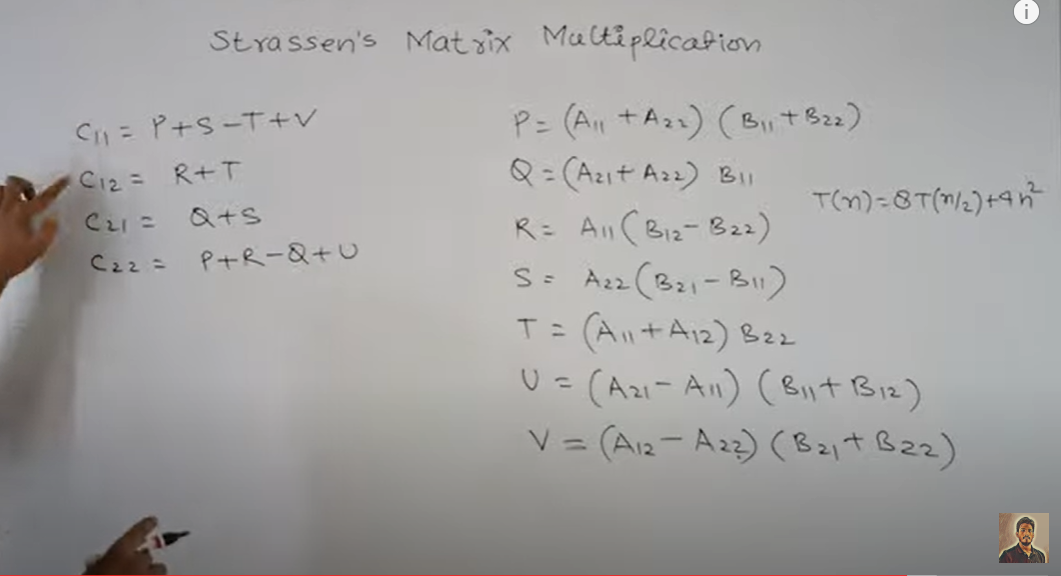 Strassen's Matrix Multiplication
C11 = P+S-T+V
C12 = R+T
C21 = Q+S
C22 = P+R-Q+U
P = (A11 + A22) (B11 + B22)
Q = (A21 + A22) B11
R = A11 (B12 - B22)
S = A22 (B21 - B11)
T = (A11 + A12) B22
U = (A21 - A11) (B11 + B12)
V = (A12 - A22) (B21 + B22)
T(n) = 8T(n/2) + 4n²
i